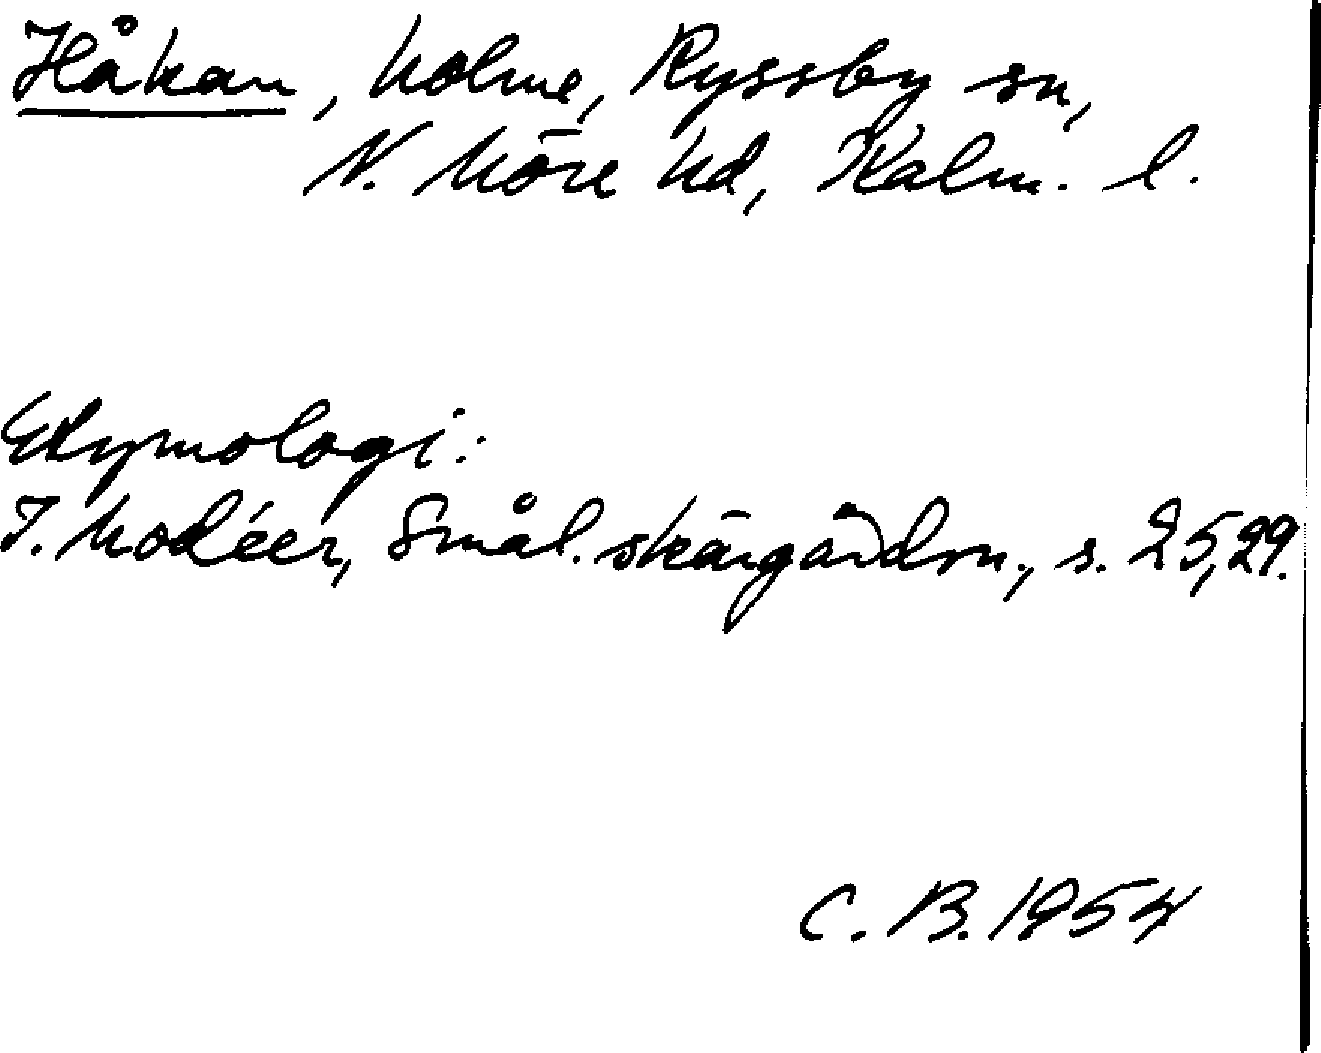 Håkan, holme, Ryssby sn,
N. Möre hd, Kalm. l.
Etymologi:
I. Modéer, Smål. skärgårdsn., s. 25, 29.
C. B. 1954